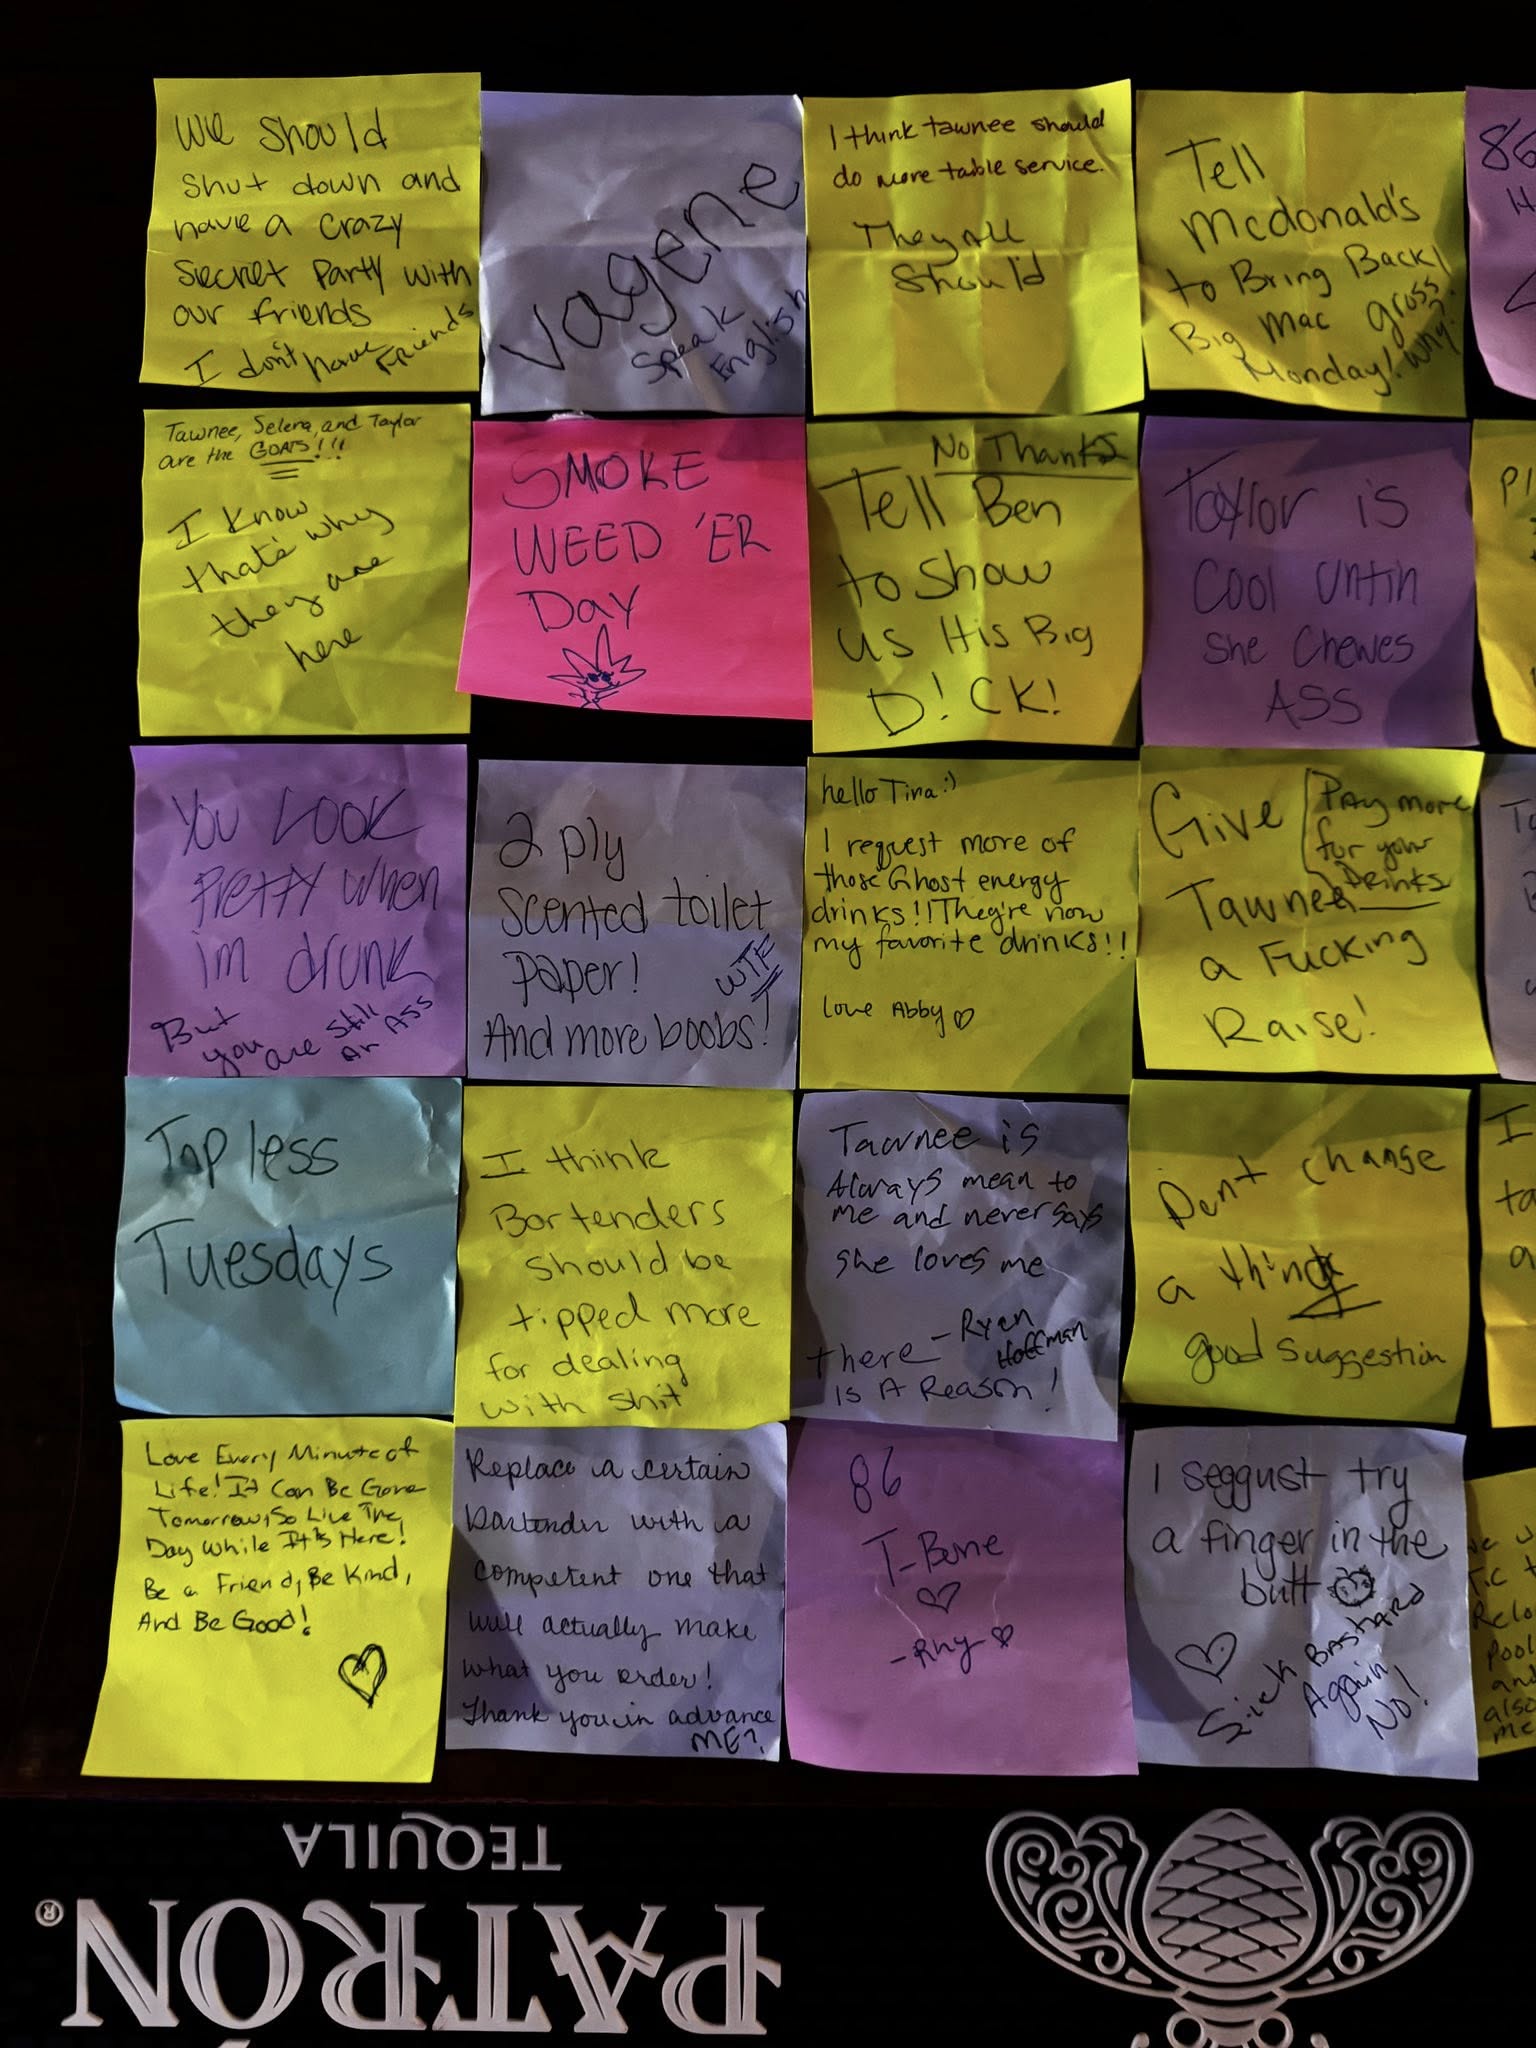 We Should
shut down and
have a crazy
Secret Party with
our friends
I don't have Friends
Vagene
Speak
English
I think tawnee should
do more table service.
They All
Should
Tell
Mcdonald's
to Bring Back
Big Mac
Monday!
gross!
why?
86
Tawnee, Selena, and Taylor
are the GOATS!!!
I know
that's why
they are
here
SMOKE
WEED 'ER
DAY
No Thanks
Tell Ben
to show
us His Big
D!CK!
Taylor is
Cool untin
she Chewes
ASS
You LOOK
Pretty when
im drunk
But
you are still
An ASS
2 ply
scented toilet
paper!
WTF
And more boobs!
hello Tina :)
I request more of
those Ghost energy
drinks!! They're now
my favorite drinks!!
love Abby ♡
Give
Tawnee
a Fucking
Raise!
Pay more
for your
Drinks
Topless
Tuesdays
I think
Bartenders
should be
tipped more
for dealing
with shit
Tawnee is
Always mean to
me and never says
she loves me
- Ryan
Hoffman
there
is A Reason!
Dont change
a thing
good suggestion
I
ta
a
Love Every Minute of
Life! It Can Be Gone
Tomorrow, So Live The
Day While It's Here!
Be a Friend, Be Kind,
And Be Good!
Replace a certain
bartender with a
competent one that
will actually make
what you order!
Thank you in advance
ME?
86
T-Bone
♡
-Rhy ♡
I seggust try
a finger in the
butt
♡
Sick Bastard
Again
No!
Relo
Pool
and
also
me
TEQUILA
PATRÓN®